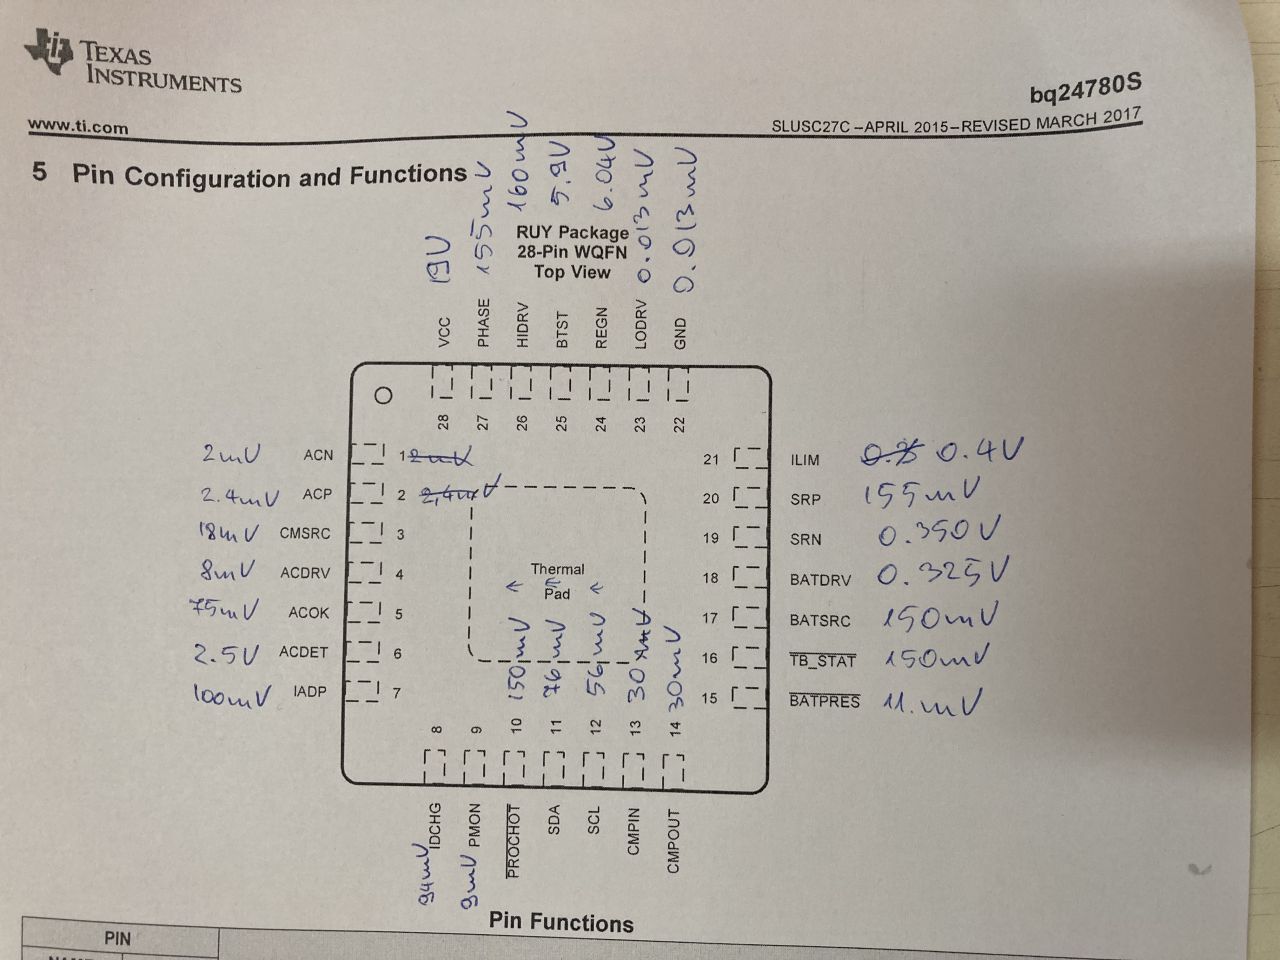 TEXAS
INSTRUMENTS
www.ti.com
bq24780S
SLUSC27C –APRIL 2015–REVISED MARCH 2017
5 Pin Configuration and Functions
RUY Package
28-Pin WQFN
Top View
19V 155mV 160mV 5.9V 6.04V 0.013mV 0.013mV
VCC PHASE HIDRV BTST REGN LODRV GND
28 27 26 25 24 23 22
2mV ACN 1 2mV
2.4mV ACP 2 2,4mV
18mV CMSRC 3
8mV ACDRV 4
75mV ACOK 5
2.5V ACDET 6
100mV IADP 7
21 ILIM 0.4V
20 SRP 155mV
19 SRN 0.350V
18 BATDRV 0.325V
17 BATSRC 150mV
16 TB_STAT 150mV
15 BATPRES 11.mV
Thermal
Pad
150mV 76mV 56mV 30mV 30mV
8 9 10 11 12 13 14
IDCHG PMON PROCHOT SDA SCL CMPIN CMPOUT
94mV 9mV
Pin Functions
PIN